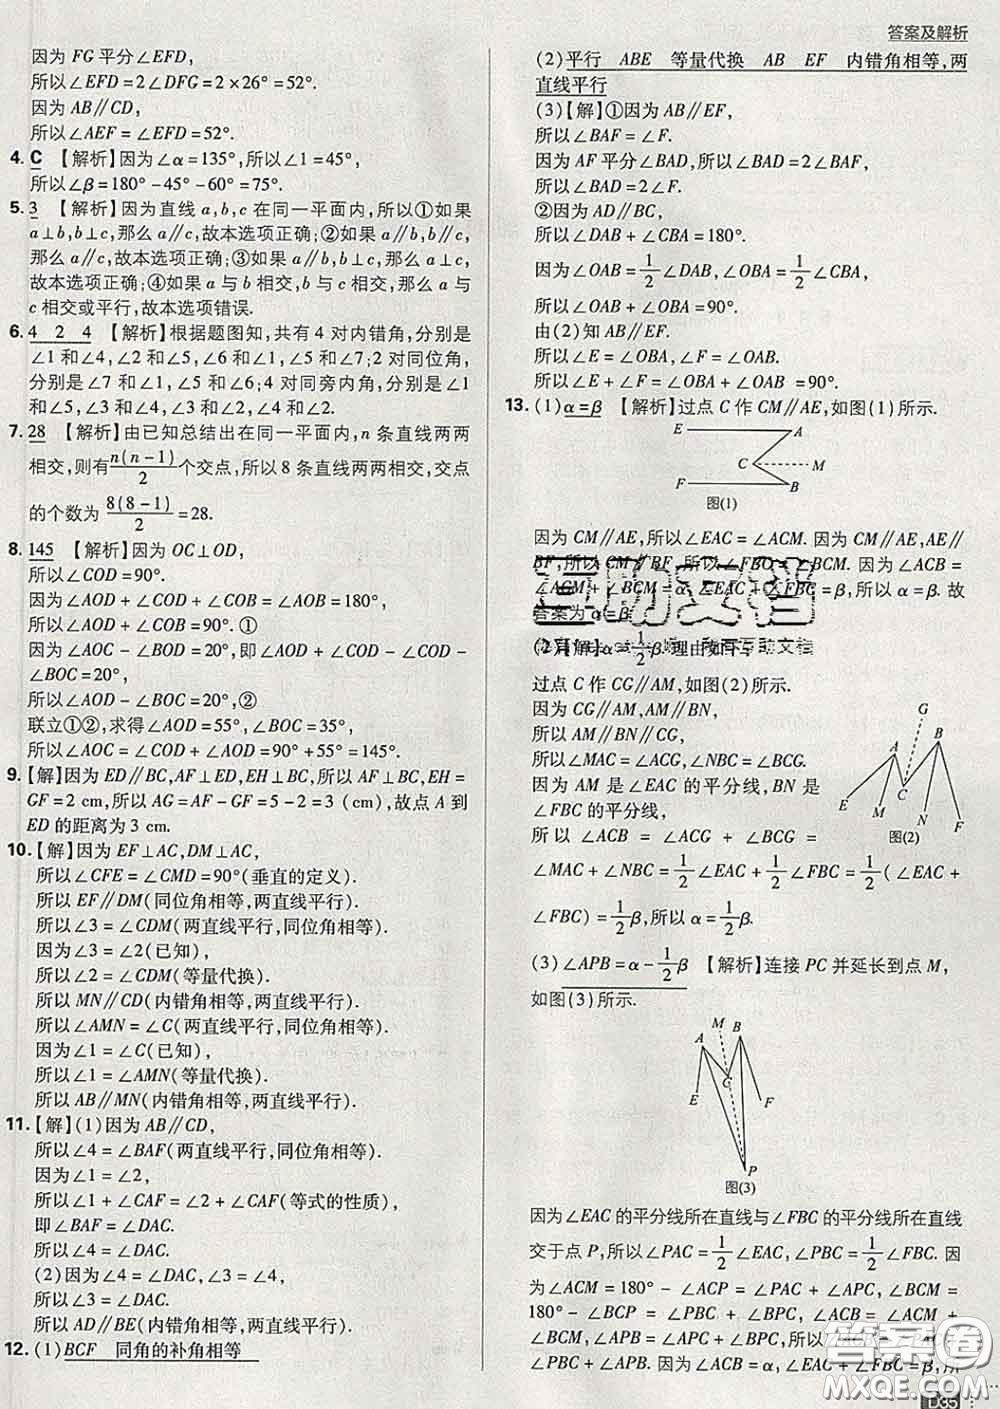 答案及解析
因为 FG 平分∠EFD,
所以∠EFD = 2∠DFG = 2×26° = 52°.
因为 AB∥CD,
所以∠AEF = ∠EFD = 52°.
4. C 【解析】因为∠α = 135°,所以∠1 = 45°,
所以∠β = 180° - 45° - 60° = 75°.
5. 3 【解析】因为直线 a,b,c 在同一平面内,所以①如果
a⊥b,b⊥c,那么 a∥c,故本选项正确;②如果 a∥b,b∥c,
那么 a∥c,故本选项正确;③如果 a∥b,b⊥c,那么 a⊥c,
故本选项正确;④如果 a 与 b 相交,b 与 c 相交,那么 a 与
c 相交或平行,故本选项错误.
6. 4 2 4 【解析】根据题图知,共有 4 对内错角,分别是
∠1 和∠4,∠2 和∠5,∠6 和∠2,∠5 和∠7;2 对同位角,
分别是∠7 和∠1,∠5 和∠6;4 对同旁内角,分别是∠1
和∠5,∠3 和∠4,∠3 和∠2,∠4 和∠2.
7. 28 【解析】由已知总结出在同一平面内,n 条直线两两
相交,则有 n(n-1)/2 个交点,所以 8 条直线两两相交,交点
的个数为 8(8-1)/2 = 28.
8. 145 【解析】因为 OC⊥OD,
所以∠COD = 90°.
因为∠AOD + ∠COD + ∠COB = ∠AOB = 180°,
所以∠AOD + ∠BOC = 90°.①
因为∠AOC - ∠BOD = 20°,即∠AOD + ∠COD - ∠COD -
∠BOC = 20°,
所以∠AOD - ∠BOC = 20°,②
联立①②,求得∠AOD = 55°,∠BOC = 35°,
所以∠AOC = ∠COD + ∠AOD = 90° + 55° = 145°.
9. 【解】因为 ED∥BC,AF⊥ED,EH⊥BC,所以 AF⊥BC,EH =
GF = 2 cm,所以 AG = AF - GF = 5 - 2 = 3(cm),故点 A 到
ED 的距离为 3 cm.
10. 【解】因为 EF⊥AC,DM⊥AC,
所以∠CFE = ∠CMD = 90°(垂直的定义).
所以 EF∥DM(同位角相等,两直线平行).
所以∠3 = ∠CDM(两直线平行,同位角相等).
因为∠3 = ∠2(已知),
所以∠2 = ∠CDM(等量代换).
所以 MN∥CD(内错角相等,两直线平行).
所以∠AMN = ∠C(两直线平行,同位角相等).
因为∠1 = ∠C(已知),
所以∠1 = ∠AMN(等量代换).
所以 AB∥MN(内错角相等,两直线平行).
11. 【解】(1)因为 AB∥CD,
所以∠4 = ∠BAF(两直线平行,同位角相等).
因为∠1 = ∠2,
所以∠1 + ∠CAF = ∠2 + ∠CAF(等式的性质),
即∠BAF = ∠DAC.
所以∠4 = ∠DAC.
(2)因为∠4 = ∠DAC,∠3 = ∠4,
所以∠3 = ∠DAC.
所以 AD∥BE(内错角相等,两直线平行).
12. (1) BCF 同角的补角相等
(2)平行 ABE 等量代换 AB EF 内错角相等,两
直线平行
(3)【解】①因为 AB∥EF,
所以∠BAF = ∠F.
因为 AF 平分∠BAD,所以∠BAD = 2∠BAF,
所以∠BAD = 2∠F.
②因为 AD∥BC,
所以∠DAB + ∠CBA = 180°.
因为∠OAB = 1/2∠DAB,∠OBA = 1/2∠CBA,
所以∠OAB + ∠OBA = 90°.
由(2)知 AB∥EF,
所以∠E = ∠OBA,∠F = ∠OAB.
所以∠E + ∠F = ∠OBA + ∠OAB = 90°.
13. (1) α=β 【解析】过点 C 作 CM∥AE,如图(1)所示.
E A
C M
F B
图(1)
因为 CM∥AE,所以∠EAC = ∠ACM. 因为 CM∥AE,AE∥
BF,所以 CM∥BF,所以∠FBC = ∠BCM. 因为∠ACB =
∠ACM + ∠BCM = α,∠EAC + ∠FBC = β,所以 α = β. 故
答案为 α = β.
(2)【解】α = 1/2β. 理由如下:
过点 C 作 CG∥AM,如图(2)所示.
因为 CG∥AM,AM∥BN,
所以 AM∥BN∥CG,
所以∠MAC = ∠ACG,∠NBC = ∠BCG.
因为 AM 是∠EAC 的平分线,BN 是
∠FBC 的平分线,
所以∠ACB = ∠ACG + ∠BCG =
G
A B
C
E M N F
图(2)
∠MAC + ∠NBC = 1/2∠EAC + 1/2∠FBC = 1/2(∠EAC +
∠FBC) = 1/2β,所以 α = 1/2β.
(3) ∠APB = α - 1/2β 【解析】连接 PC 并延长到点 M,
如图(3)所示.
M B
A
C
E F
P
图(3)
因为∠EAC 的平分线所在直线与∠FBC 的平分线所在直线
交于点 P,所以∠PAC = 1/2∠EAC,∠PBC = 1/2∠FBC. 因
为∠ACM = 180° - ∠ACP = ∠PAC + ∠APC,∠BCM =
180° - ∠BCP = ∠PBC + ∠BPC,所以∠ACB = ∠ACM +
∠BCM,∠APB = ∠APC + ∠BPC,所以∠ACB = ∠PAC +
∠PBC + ∠APB. 因为∠ACB = α,∠EAC + ∠FBC = β,所
答案圈
MXQE.COM
D35